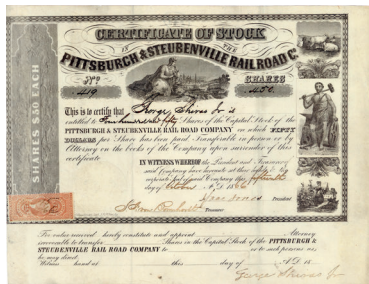 CERTIFICATE OF STOCK
IN THE
PITTSBURGH & STEUBENVILLE RAIL ROAD Co.
No. SHARES
419 450
SHARES $50 EACH
This is to certify that George Shiras Jr is
entitled to Four hundred and fifty Shares of the Capital Stock of the
PITTSBURGH & STEUBENVILLE RAIL ROAD COMPANY on which FIFTY
DOLLARS per Share has been paid Transferable in person or by
Attorney on the books of the Company upon surrender of this
certificate
IN WITNESS WHEREOF the President and Treasurer of
said Company have hereunto set their
corporate Seal of said Company this
day of A.D. 186
President
Treasurer
For value received hereby constitute and appoint Attorney
irrevocable to transfer Shares in the Capital Stock of the PITTSBURGH &
STEUBENVILLE RAIL ROAD COMPANY to or to such persons as
he may direct
Witness hand at this day of A.D. 18
George Shiras Jr